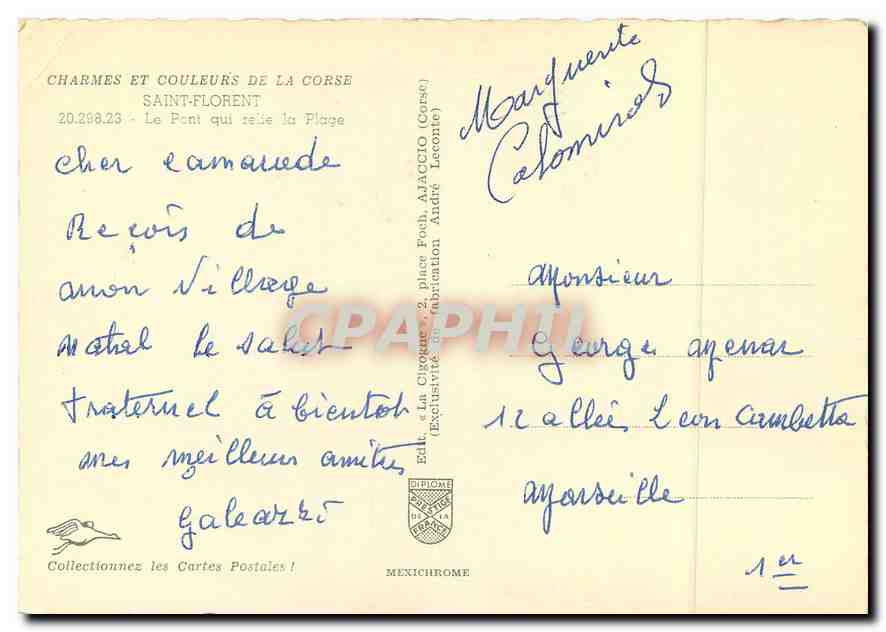 CHARMES ET COULEURS DE LA CORSE
SAINT-FLORENT
20.298.23 - Le Pont qui relie la Plage
cher camarade
Reçois de
mon Village
natal le salut
fraternel à bientot
mes meilleurs amitiés
Galeazzi
Collectionnez les Cartes Postales !
Edit. « La Cigogne », 2, place Foch, AJACCIO (Corse)
(Exclusivité de fabrication André Leconte)
CPAPHIL
DIPLOME
PRESTIGE
DE LA
FRANCE
MEXICHROME
Marguerite
Monsieur
George
12 allée Leon Gambetta
Marseille
1er